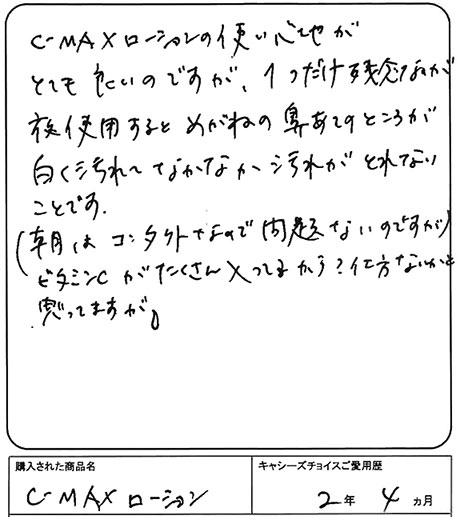 C-MAXローションの使い心地が
とても良いのですが、1つだけ残念なのが
夜使用するとめがねの鼻あてのところが
白く汚れてなかなか汚れがとれない
ことです。
(朝はコンタクトなので問題ないのですが)
ビタミンCがたくさん入ってるから?仕方ないかと
思ってますが。
購入された商品名
キャシーズチョイスご愛用歴
C-MAXローション
2年 4ヵ月